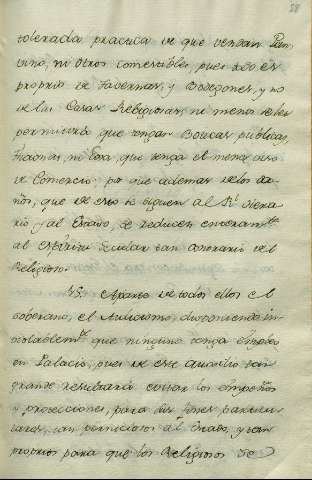 58
tolerada practica de que vendan Pan,
vino, ni otros comestibles, pues esto es
proprio de Tavernas, y Bodegones, y no
de las Casas Religiosas, ni menos se les
permitirá que tengan Boticas publicas,
ni cosa, que tenga el menor aire
de Comercio; por que ademas de los da-
ños, que de esto se siguen al Rl. Hera-
rio y al Estado, se reducen enteramte.
al espiritu secular tan contrario del
Religioso.
Aparte de todos ellos el
soberano, el disponiendo in-
violablemte. que ninguno tenga entrada
en Palacio, pues de este Auxilio tan
grande resultará cortar los empeños
y protecciones, para sus fines particu-
lares, tan perniciosos al Estado, y tan
proprios para que los Religiosos se